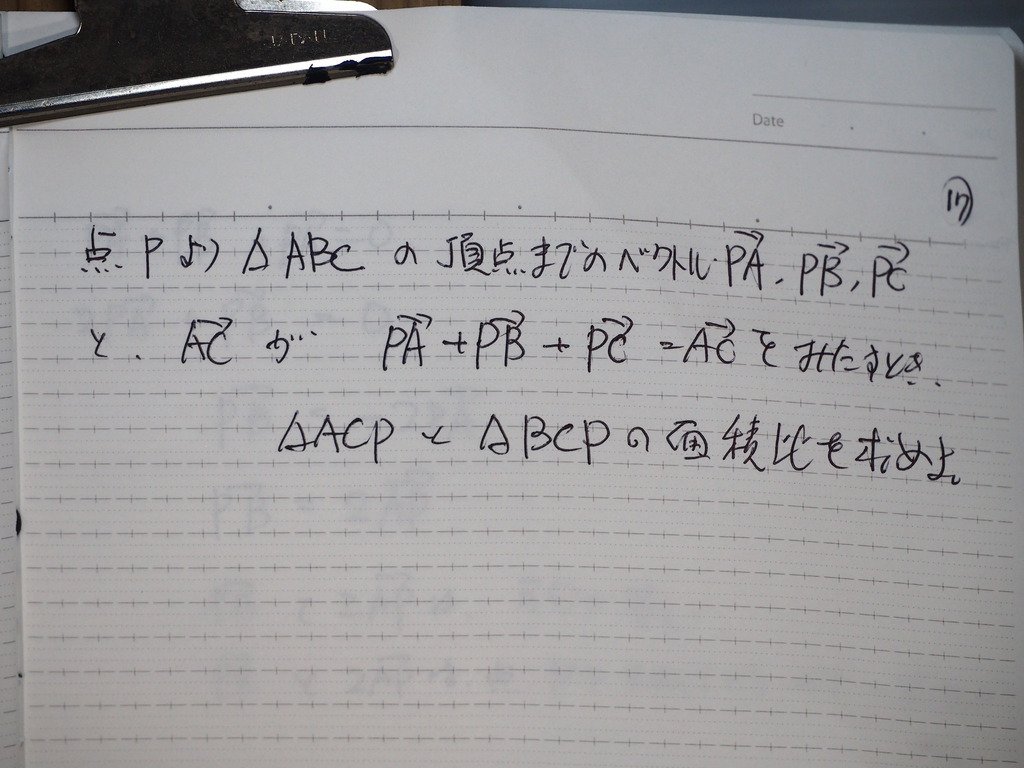 Date
⑰
点PよりΔABCの頂点までのベクトルPA→, PB→, PC→
と、AC→が PA→+PB→+PC→=AC→をみたすとき、
ΔACPとΔBCPの面積比を求めよ。